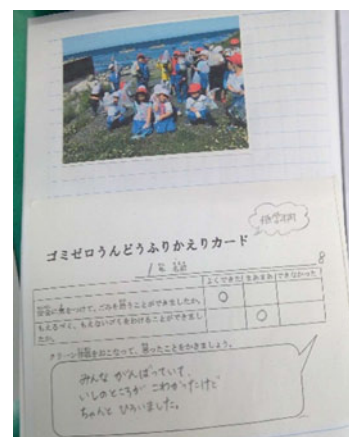 低学年用
ゴミゼロうんどうふりかえりカード
1年 名前
8
よくできた まあまあ できなかった
安全に気をつけて、ごみを拾うことができましたか。
もえるごみ、もえないごみをわけることができまし
たか。
クリーン作戦をおこなって、思ったことをかきましょう。
みんな がんばっていて、
いしのところが こわかったけど
ちゃんと ひろいました。